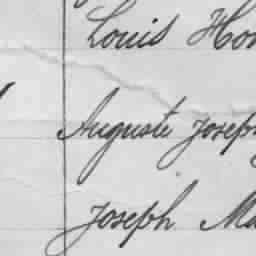 Louis Hon
Auguste Joseph
Joseph Ma